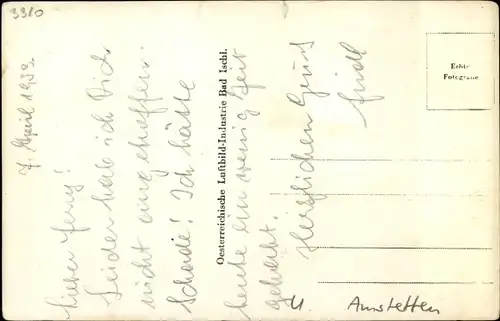 3380
7. April 1933
Lieber Ferry!
Leider hab ich Dich
nicht angetroffen.
Schade! Ich hätte
heute ein wenig Zeit
gehabt.
Herzlichen Gruß
Friedl
Oesterreichische Luftbild-Industrie Bad Ischl.
Echte
Fotografie
Amstetten